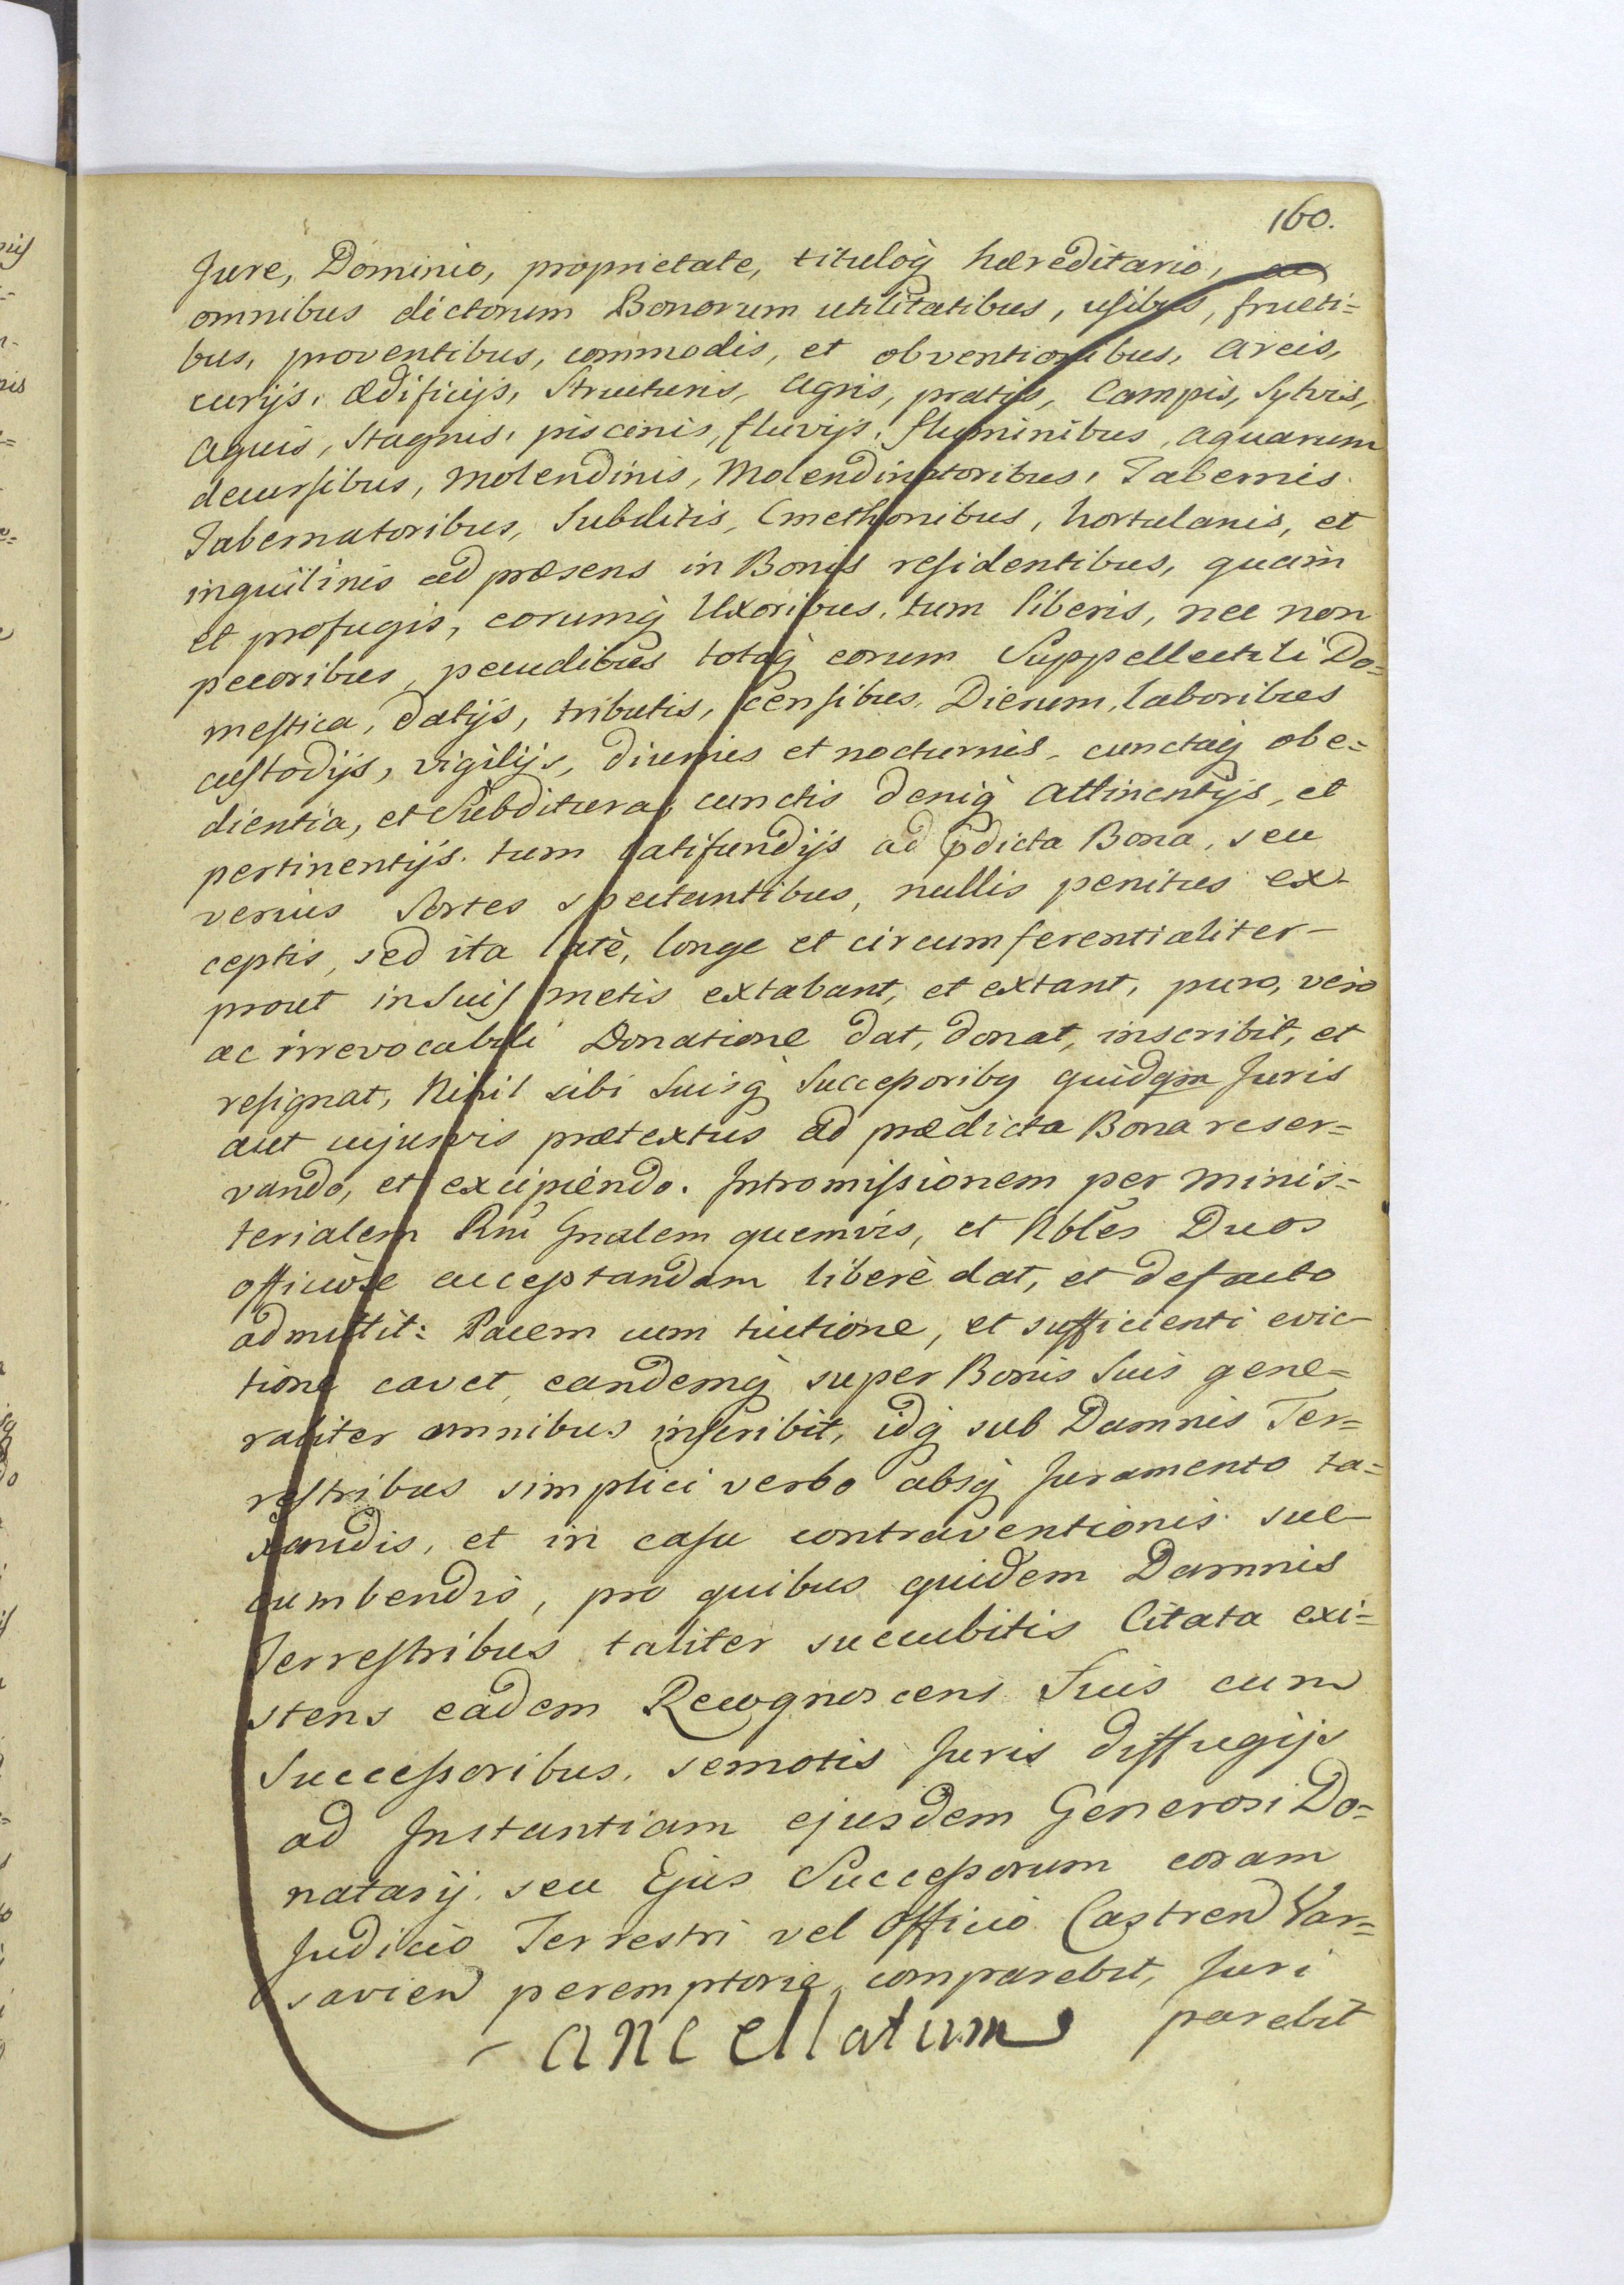 160.
Jure, Dominio, proprietate, tituloq́ hæreditario, ac
omnibus dictorum Bonorum utilitatibus, usibus, fructi=
bus, proventibus, commodis, et obventionibus, areis,
curijs, ædificijs, Structuris, Agris, pratis, Campis, Sylvis,
Aquis, Stagnis, piscinis, fluvijs, fluminibus, aquarum
decursibus, Molendinis, Molendinatoribus, Tabernis
Tabernatoribus, Subditis, Cmethonibus, hortulanis, et
inquilinis ad præsens in Bonis residentibus, quàm
et profugis, eorumq́ Uxoribus, tum liberis, nec non
pecoribus, pecudibus totaq́ eorum Suppellectili Do=
mestica, datijs, tributis, censibus, Dierum, laboribus
custodijs, vigilijs, diurnis et nocturnis, cunctaq́ obe=
dientia, et Subditura, cunctis deniq́ attinentijs, et
pertinentijs, tum latifundijs ad p̄dicta Bona, seu
verius Sortes spectantibus, nullis penitus ex-
ceptis, sed ita latè, longe et circumferentialiter-
prout in Suis metis extabant, et extant, puro, vero
ac irrevocabili Donatione dat, donat, inscribit, et
resignat, Nihil sibi Suisq́ Successoribq quidqm Juris
aut cujusvis prætextus ad prædicta Bona reser=
vando, et excipiendo. Intromissionem per Minis=
terialem Rni Gnalem quemvis, et Nbles Duos
officiose acceptandam liberè dat, et defacto
admittit: Pacem cum tuitione, et sufficienti evic-
tione cavet, eandemq́ super Bonis Suis gene=
raliter omnibus inscribit, idq́ sub Damnis Ter=
restribus simplici verbo absq́ Juramento ta=
xandis, et in casu contraventionis suc-
cumbendis, pro quibus quidem Damnis
Terrestribus taliter succubitis Citata exi=
stens eadem Recognoscens Suis cum
Successoribus, semotis Juris diffugijs
ad Instantiam ejusdem Generosi Do=
natarij, seu Ejus Successorum coram
Judicio Terrestri vel Officio Castren Var=
savien peremptorie comparebit, Juri
parebit
Cancellatum